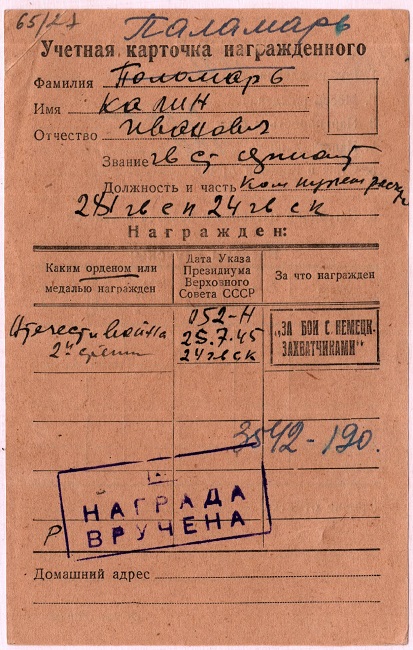 65/27
Паламарь
Учетная карточка награжденного
Фамилия Поломарь
Имя Калин
Отчество Иванович
Звание гв ст сержант
Должность и часть Ком пулем расч
241 гв сп 24 гвск
Награжден:
Каким орденом или медалью награжден
Дата Указа Президиума Верховного Совета СССР
За что награжден
Отечеств Война
2й степени
052-Н
25.7.45
24 гвск
"ЗА БОИ С НЕМЕЦК. ЗАХВАТЧИКАМИ"
3542-190.
НАГРАДА
ВРУЧЕНА
Р
Домашний адрес